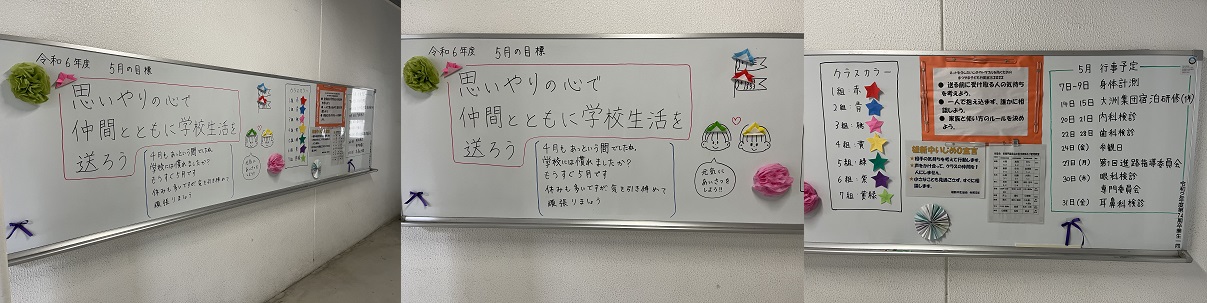 令和6年度 5月の目標
思いやりの心で
仲間とともに学校生活を
送ろう
4月もあっという間でしたね。
学校には慣れましたか?
もうすぐ5月です
休みも多いですが気を引き締めて
頑張りましょう
令和6年度 5月の目標
思いやりの心で
仲間とともに学校生活を
送ろう
4月もあっという間でしたね。
学校には慣れましたか?
もうすぐ5月です
休みも多いですが気を引き締めて
頑張りましょう
元気に
あいさつを
しよう!!
クラスカラー
1組:赤
2組:青
3組:桃
4組:黄
5組:緑
6組:紫
7組:黄緑
● 送る前に受け取る人の気持ち
を考えよう。
● 一人で抱え込まず、誰かに相
談しよう。
● 家族と使い方のルールを決め
よう。
5月 行事予定
7日~9日 身体計測
14日 15日 大洲集団宿泊研修(1年)
20日 21日 内科検診
23日 28日 歯科検診
24日(金) 参観日
27日(月) 第1回進路指導委員会
30日(木) 眼科検診
専門委員会
31日(金) 耳鼻科検診